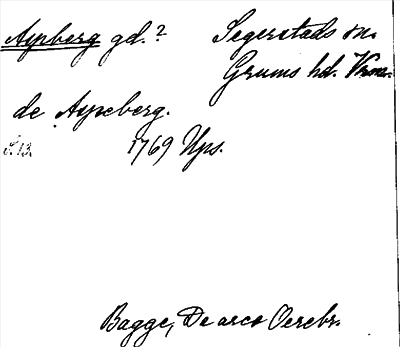 Aspberg gd.? Segerstads sn.
Grums hd. Vrml.
de Aspeberg.
S. 13. 1769 Ups.
Bagge, De arce Oerebr.